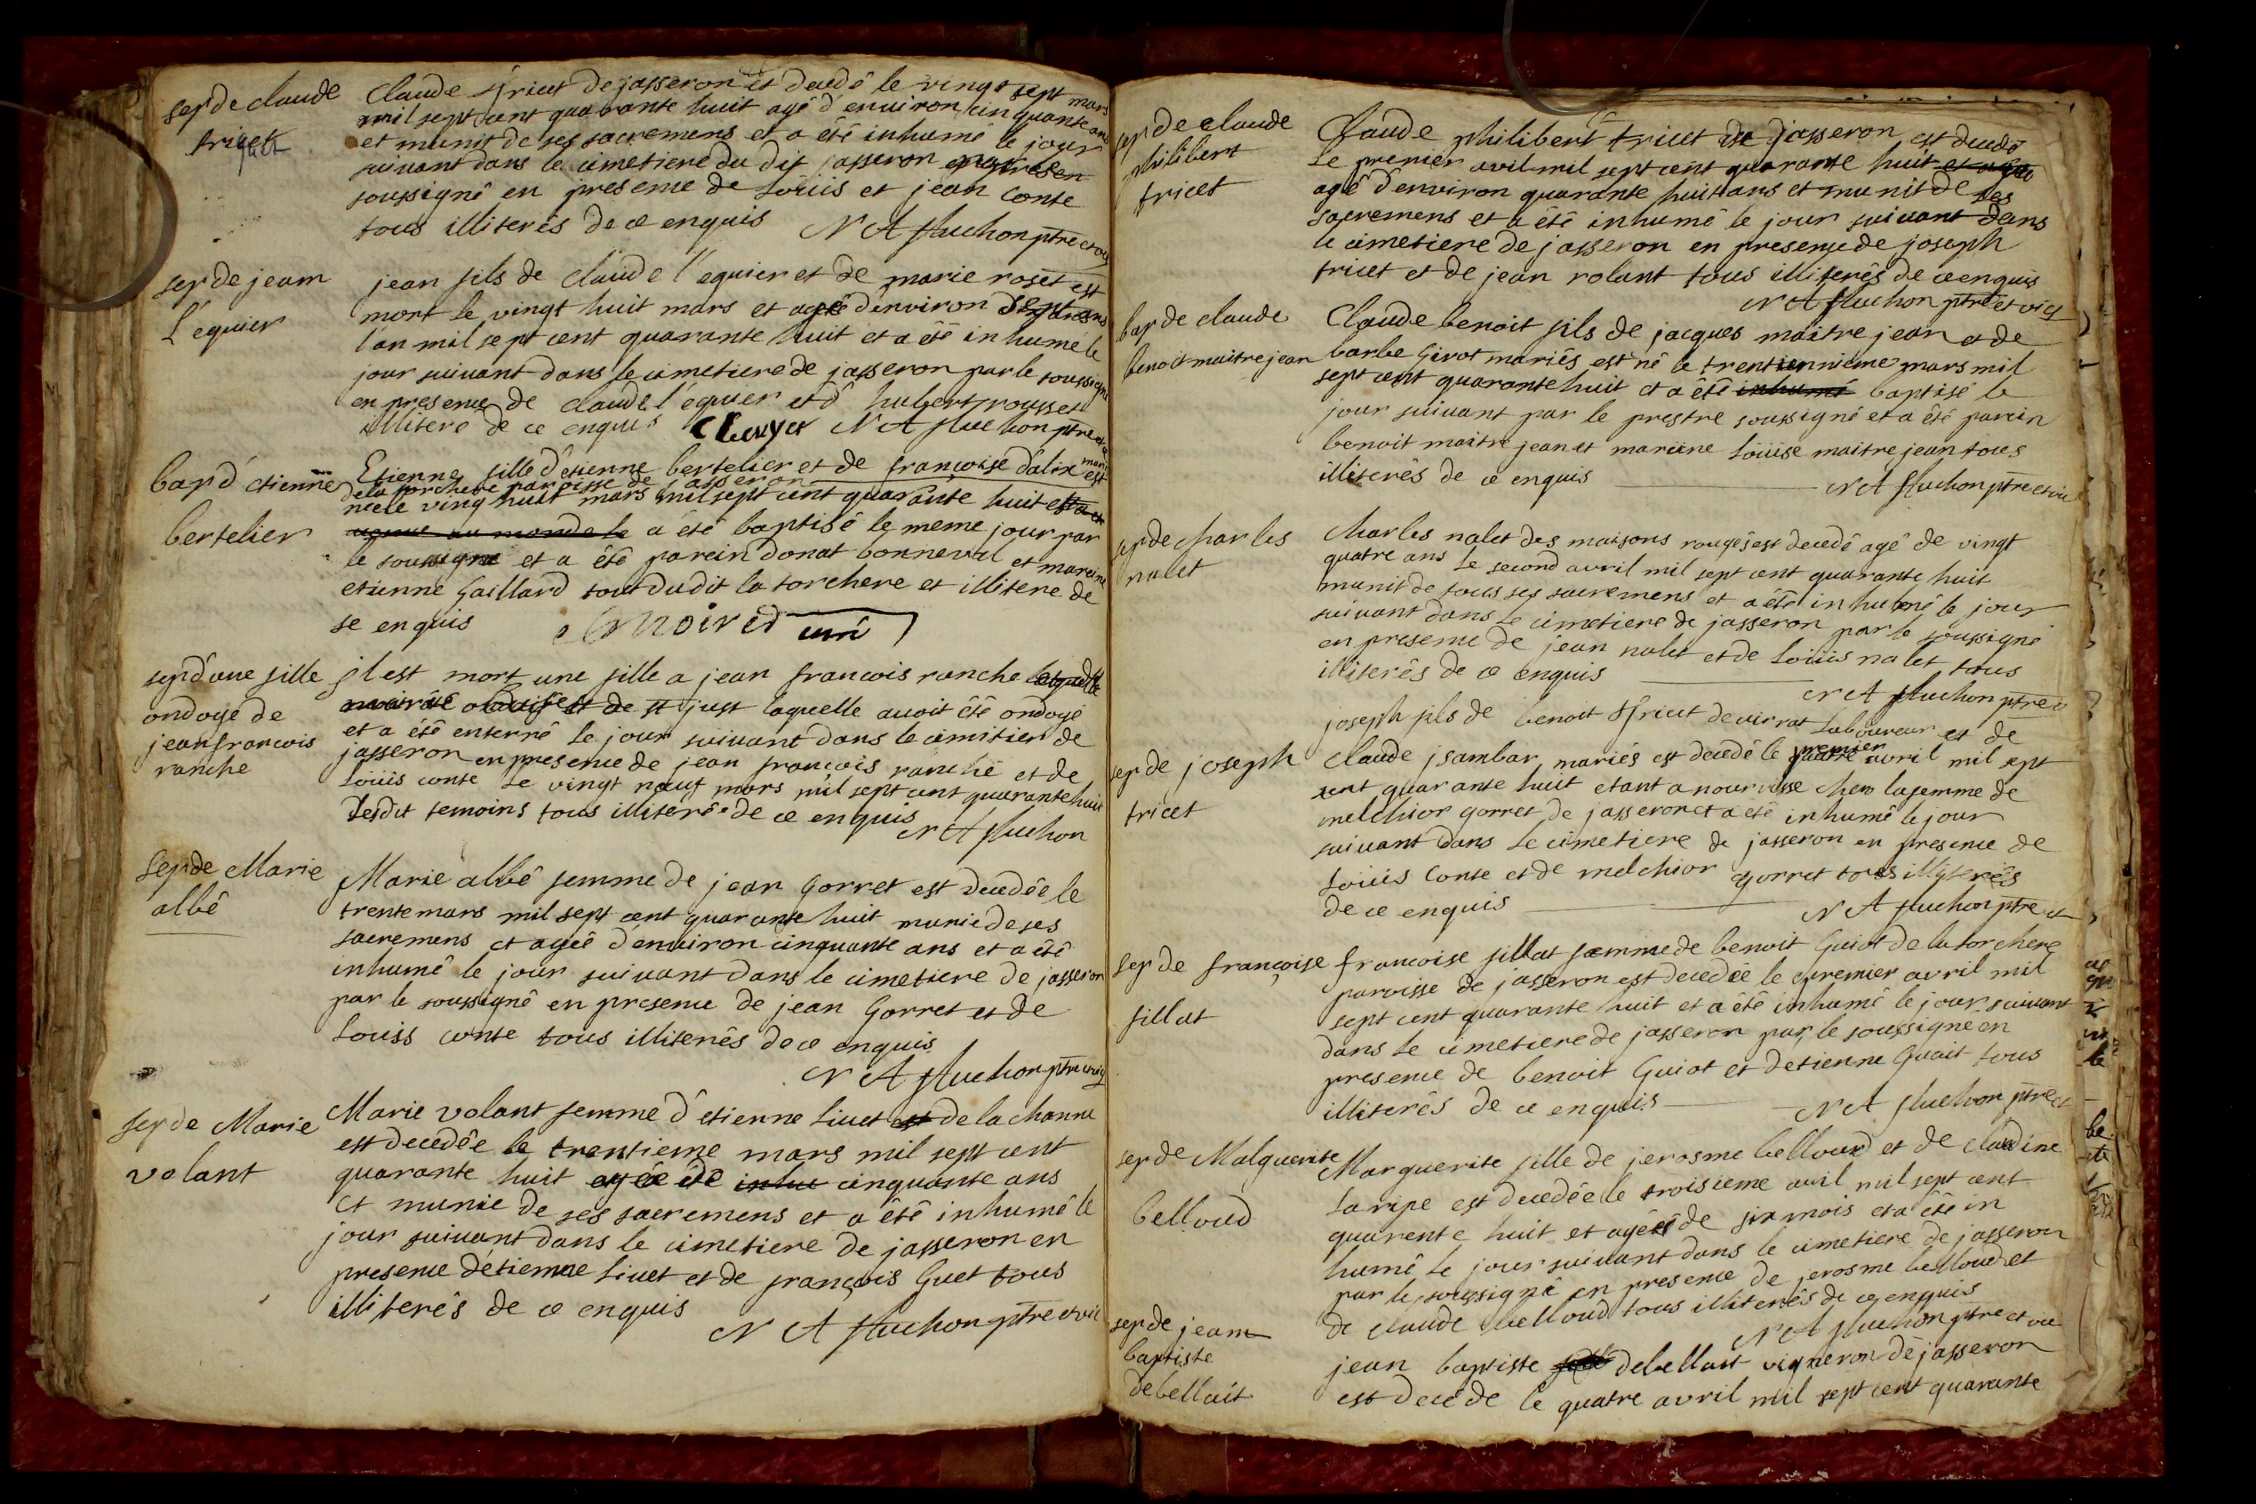 sep de claude
tricet
Claude tricet de jasseron est decedé le vingt sept mars
mil sept cent quarante huit agé d'environ cinquante ans
et munit de ses sacremens et a été inhumé le jour
suivant dans le cimetiere du dit jasseron
soussigné en presence de Loüis et jean Conte
tous illiterés de ce enquis N A fluchon ptre et vic
sep de jean
l'equier
jean fils de claude l'equier et de marie roset est
mort le vingt huit mars et agé d'environ sept ans
l'an mil sept cent quarante huit et a été inhume le
jour suivant dans le cimetiere de jasseron par le soussigné
en presence de claude l'équier et d' hubert rousset
illiteré de ce enquis N A fluchon ptre et vic
bap d' etienne
bertelier
Etienne fille d'etienne bertelier et de françoise dalix mariés est
de la torchere paroisse de jasseron
neele vingt huit mars mil sept cent quarante huit
venue au monde le a été baptisé le meme jour par
le soussigné et a été parein donat bonneval et mareine
etienne Gaillard tout dudit la torchere et illiteré de
se enquis Moired curé
sep d'une fille
ondoyé de
jean francois
ranche
jl est mort une fille a jean francois ranche laquelle
de st just laquelle avoit été ondoyé
et a été enterré le jour suivant dans le cimitier de
jasseron en presence de jean françois ranche et de
Loüis conte le vingt neuf mars mil sept cent quarante huit
Lesdit temoins tous illiteré de ce enquis
N A fluchon
Sep de Marie
albé
Marie albé femme de jean Gorret est decedée le
trente mars mil sept cent quarante huit munie de ses
sacremens et agée d'environ cinquante ans et a été
inhumé le jour suivant dans le cimetiere de jasseron
par le soussigné en presence de jean Gorret et de
Louiss conte tous illiterés de ce enquis
N A fluchon ptre vic
Sep de Marie
volant
Marie volant femme d'etienne Livet est de la channe
est decedée le trentieme mars mil sept cent
quarante huit agée de inhu cinquante ans
et munie de ses sacremens et a été inhumé le
jour suivant dans le cimetiere de jasseron en
presence d'étienne Livet et de françois Guet tous
illiterés de ce enquis N A fluchon ptre et vic
sep de claude
philibert
tricet
Claude philibert tricet de jasseron est decedé
le premier avil mil sept cent quarante huit
agé d'environ quarante huit ans et munit de ses
sacremens et a été inhumé le jour suivant dans
le cimetiere de jasseron en presence de joseph
tricet et de jean rolant tous illiterés de ce enquis
N A fluchon ptre et vic
bap de claude
benoit maitre jean
Claude benoit fils de jacques maitre jean et de
barbe Girot mariés est né le trentiennieme mars mil
sept cent quarante huit et a été inhumé baptisé le
jour suivant par le prestre soussigné et a été parein
benoit maitre jean et mareine Loüise maitre jean tous
illiterés de ce enquis N A fluchon ptre et vic
sep de charles
nalet
Charles nalet des maisons rouges est decedé agé de vingt
quatre ans le second avril mil sept cent quarante huit
munit de tous ses sacremens et a été inhumé le jour
suivant dans le cimetiere de jasseron par le soussigné
en presence de jean nalet et de Loüis nalet tous
illiterés de ce enquis
N A fluchon ptre
sep de joseph
tricet
joseph fils de benoit tricet de virrat Laboureur et de
claude jsambar mariés est decedé le quatre premier avril mil sept
cent quarante huit etant a nourrisse chez la femme de
melchior gorret de jasseron et a été inhumé le jour
suivant dans le cimetiere de jasseron en presence de
Loüis Conte et de melchior gorret tous illiterés
de ce enquis N A fluchon ptre et
Sep de françoise
fillat
francoise fillat femme de benoit Guiot de la torchere
paroisse de jasseron est decedée le premier avril mil
sept cent quarante huit et a été inhumé le jour suivant
dans le cimetiere de jasseron par le soussigné en
presence de benoit Guiot et d'etienne Guait tous
illiterés de ce enquis N A fluchon ptre et
sep de Malguerite
belloud
Marguerite fille de jerosme belloud et de claudine
Laripe est decedée le troisieme avil mil sept cent
quarente huit et agée de six mois et a été in
humé le jour suivant dans le cimetiere de jasseron
par le soussigné en presence de jerosme belloud et
de claude belloud tous illiterés de ce enquis
N A fluchon ptre et vic
sep de jean
baptiste
debellait
jean baptiste debellait vigneron de jasseron
est decede le quatre avril mil sept cent quarante